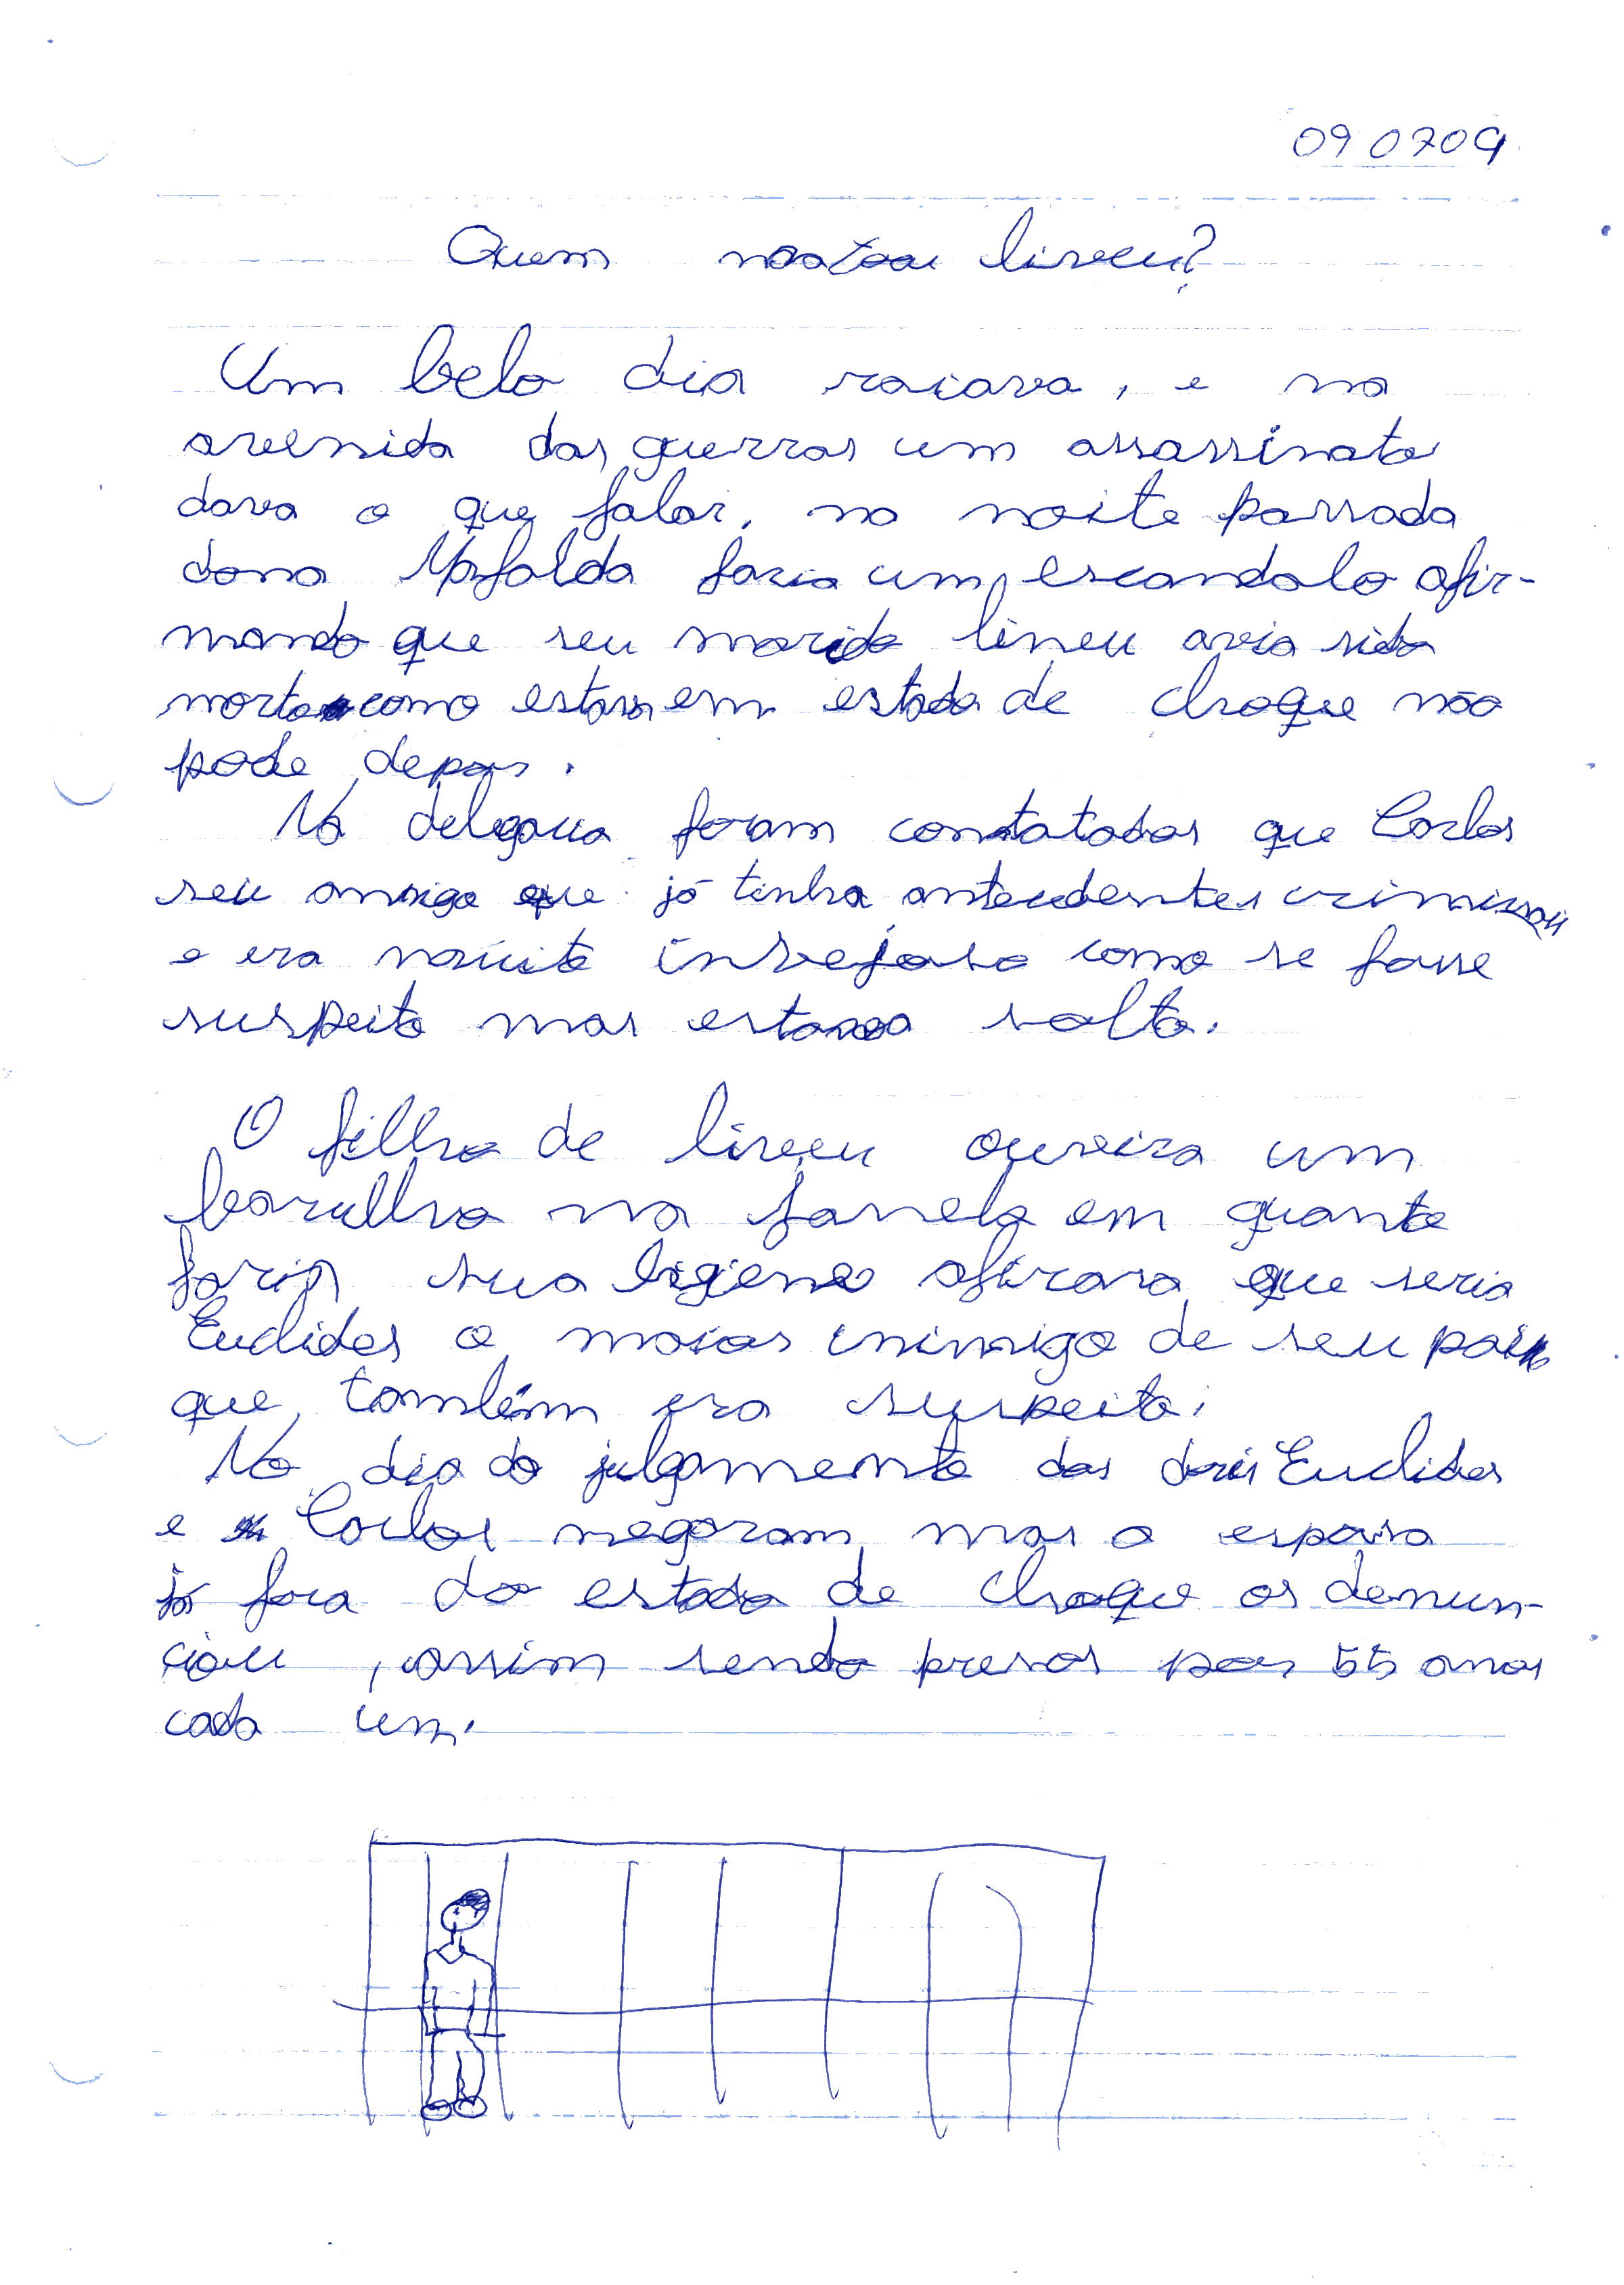 090709
Quem matou lineu?
Um belo dia raiava, e na
avenida das guerras um assassinato
dava o que falar, na noite passada
dona Mafalda fazia um escandalo afir-
mando que seu marido lineu avia sido
morto como estava em estado de choque não
pode depos.
Na delegacia foram constatados que Carlos
seu amigo que já tinha antecedentes criminais
e era muito invejoso como se fosse
suspeito mas estava solto.
O filho de lineu ouvira um
barulho na janela em quanto
fazia sua higiene afirava que seria
Euclides o maior inimigo de seu pai
que também era suspeito.
No dia do julgamento dos dois Euclides
e Carlos negaram mas a esposa
já fora do estado de choque os denun-
ciou, assim sendo presos por 55 anos
cada um.